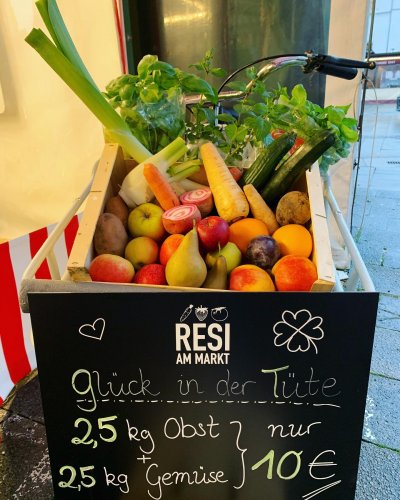 RESI
AM MARKT
glück in der Tüte
2,5 kg Obst } nur
+
2,5 kg Gemüse } 10 €